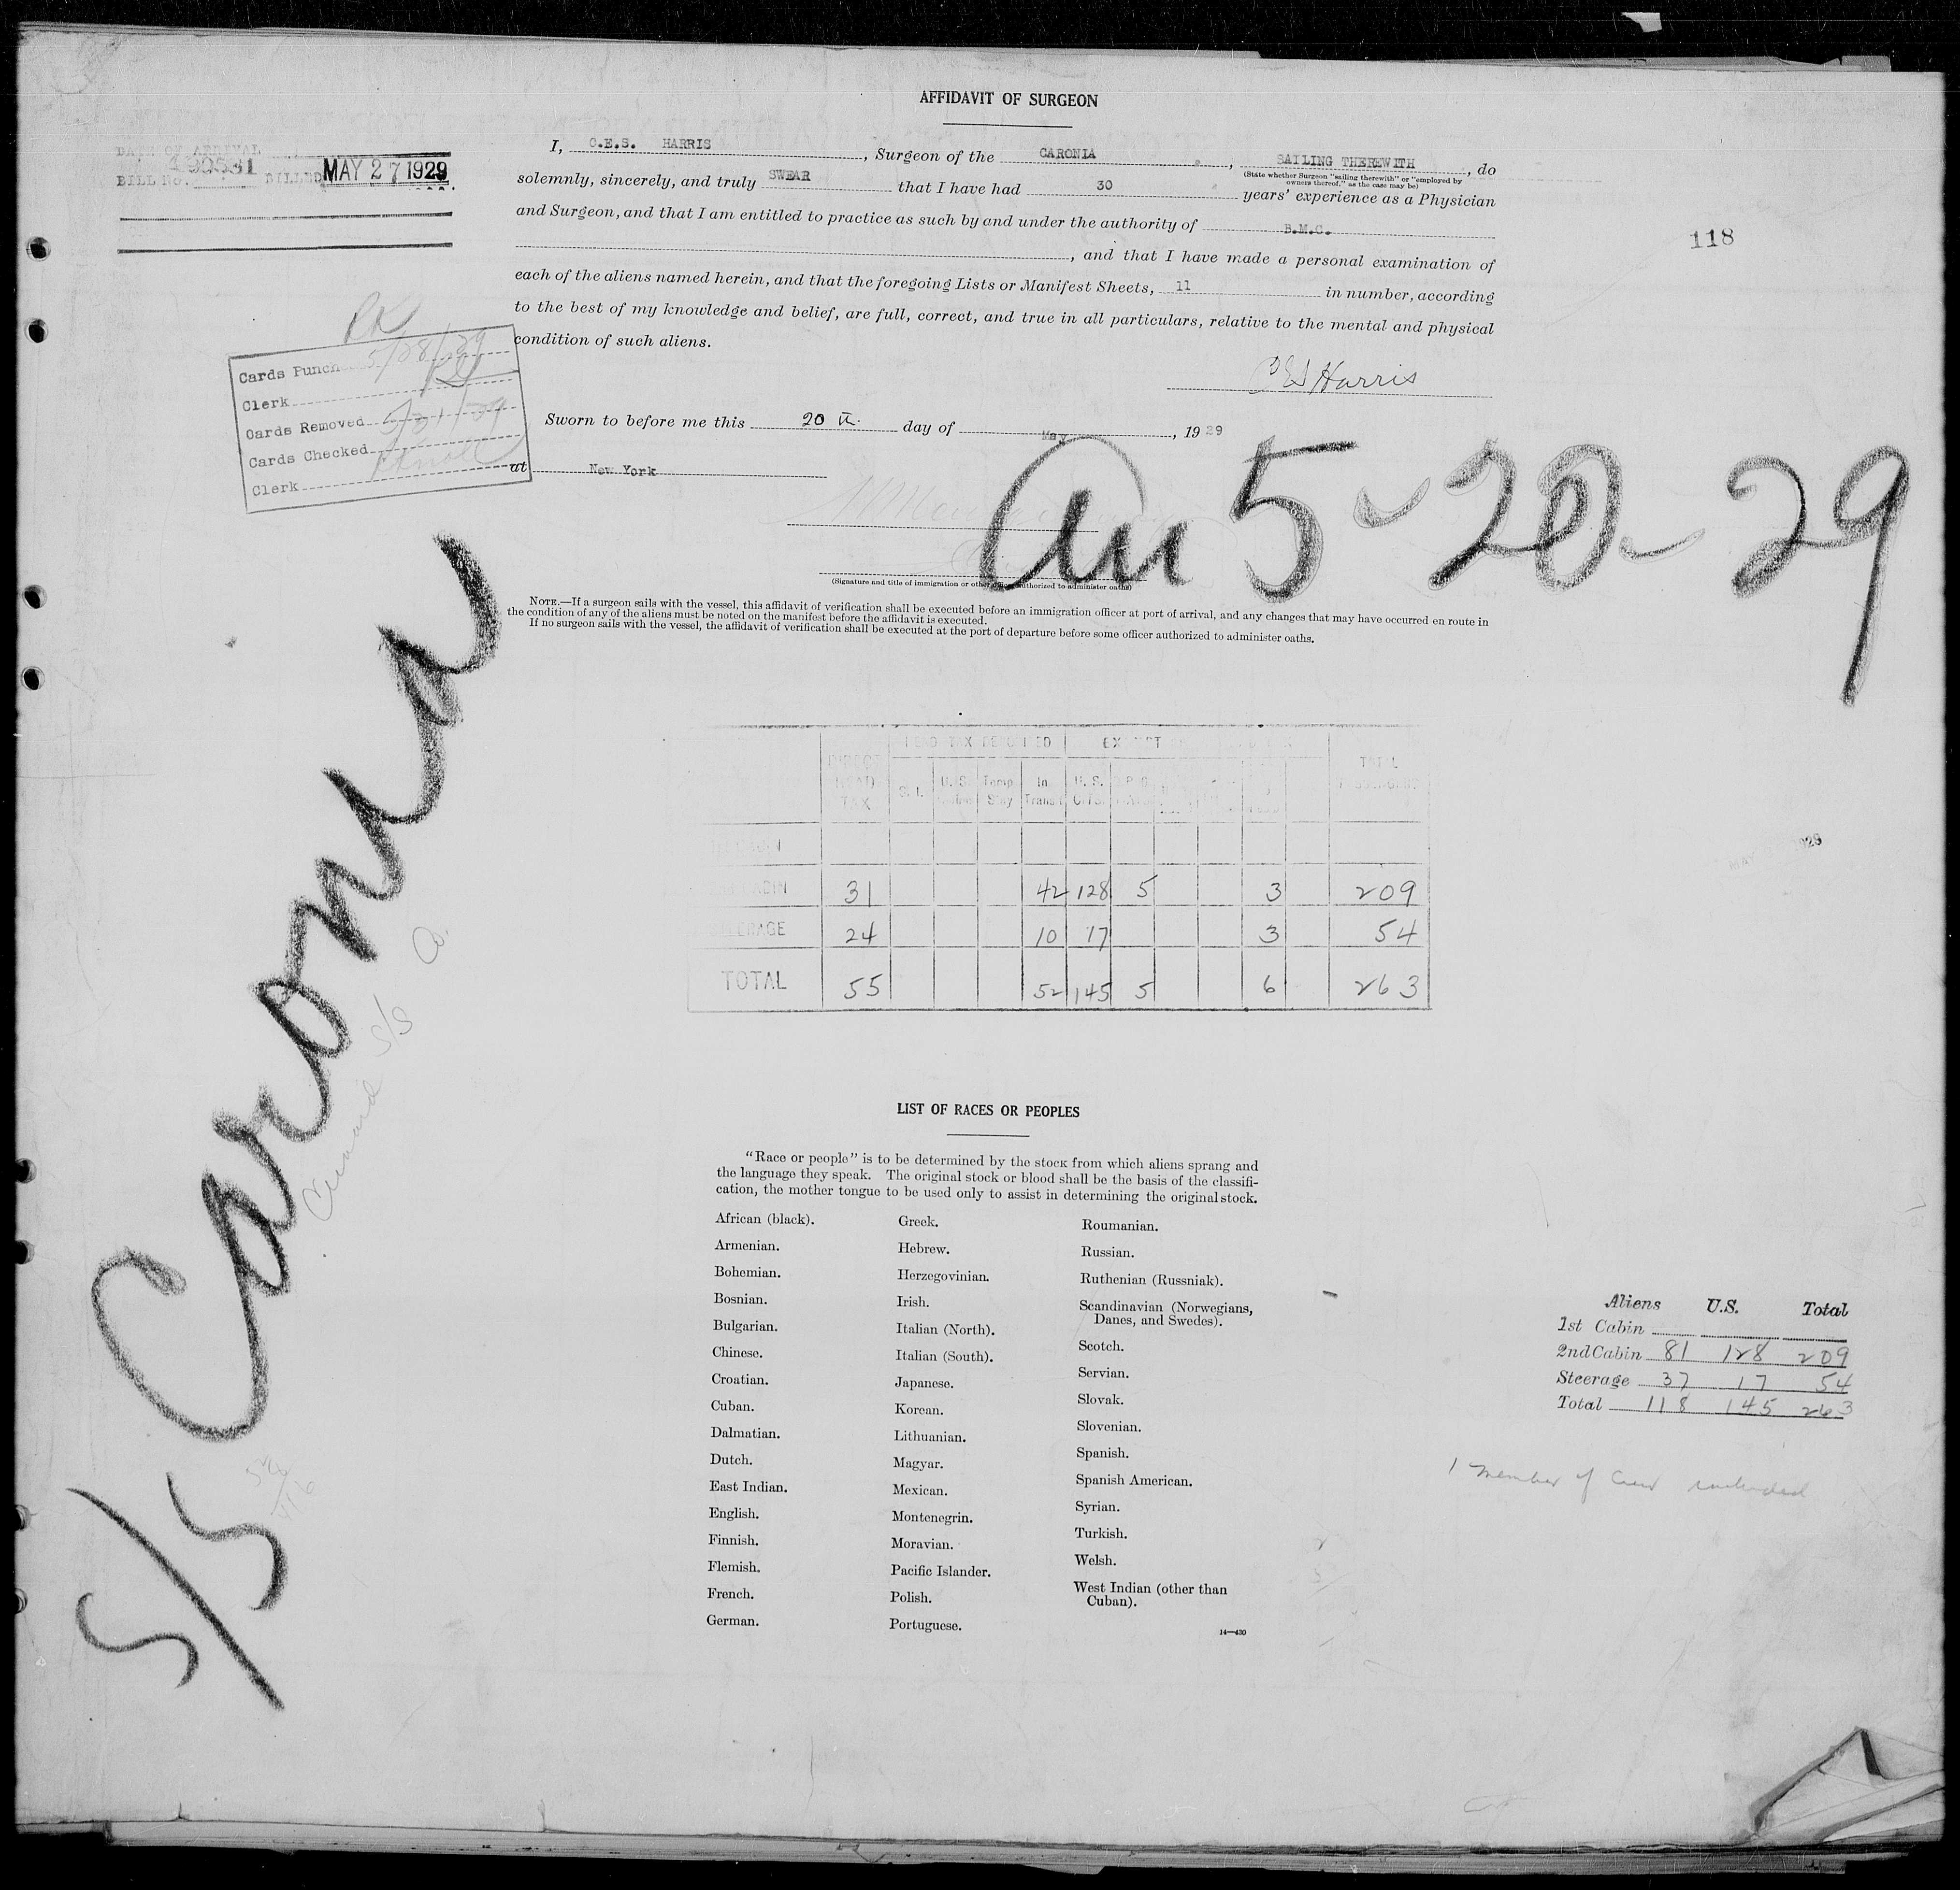 AFFIDAVIT OF SURGEON
DATE OF ARRIVAL
BILL No. 190531 BILLED MAY 27 1929
I, C.E.S. HARRIS, Surgeon of the CARONIA, SAILING THEREWITH, do
(State whether Surgeon "sailing therewith" or "employed by
owners thereof," as the case may be)
solemnly, sincerely, and truly SWEAR that I have had 30 years' experience as a Physician
and Surgeon, and that I am entitled to practice as such by and under the authority of B.M.C.
, and that I have made a personal examination of
118
each of the aliens named herein, and that the foregoing Lists or Manifest Sheets, 11 in number, according
to the best of my knowledge and belief, are full, correct, and true in all particulars, relative to the mental and physical
condition of such aliens.
Cards Punch 5/08/29
Clerk
Cards Removed 5/31/29
Cards Checked
Clerk
CES Harris
Sworn to before me this 20th day of May, 1929
at New York
5-20-29
(Signature and title of immigration or other officer authorized to administer oaths)
NOTE.—If a surgeon sails with the vessel, this affidavit of verification shall be executed before an immigration officer at port of arrival, and any changes that may have occurred en route in
the condition of any of the aliens must be noted on the manifest before the affidavit is executed.
If no surgeon sails with the vessel, the affidavit of verification shall be executed at the port of departure before some officer authorized to administer oaths.
S/S Caronia
Cunard S/S Co.
HEAD TAX DEPOSITED EXEMPT
DIRECT TAX U. S. Temp. Stay In Transit U. S. TOTAL PASSENGERS
CABIN 31 42 128 5 3 209
STEERAGE 24 10 17 3 54
TOTAL 55 52 145 5 6 263
LIST OF RACES OR PEOPLES
"Race or people" is to be determined by the stock from which aliens sprang and
the language they speak. The original stock or blood shall be the basis of the classifi-
cation, the mother tongue to be used only to assist in determining the original stock.
African (black).
Armenian.
Bohemian.
Bosnian.
Bulgarian.
Chinese.
Croatian.
Cuban.
Dalmatian.
Dutch.
East Indian.
English.
Finnish.
Flemish.
French.
German.
Greek.
Hebrew.
Herzegovinian.
Irish.
Italian (North).
Italian (South).
Japanese.
Korean.
Lithuanian.
Magyar.
Mexican.
Montenegrin.
Moravian.
Pacific Islander.
Polish.
Portuguese.
Roumanian.
Russian.
Ruthenian (Russniak).
Scandinavian (Norwegians,
Danes, and Swedes).
Scotch.
Servian.
Slovak.
Slovenian.
Spanish.
Spanish American.
Syrian.
Turkish.
Welsh.
West Indian (other than
Cuban).
14—430
Aliens U.S. Total
1st Cabin
2nd Cabin 81 128 209
Steerage 37 17 54
Total 118 145 263
1 member of Crew included